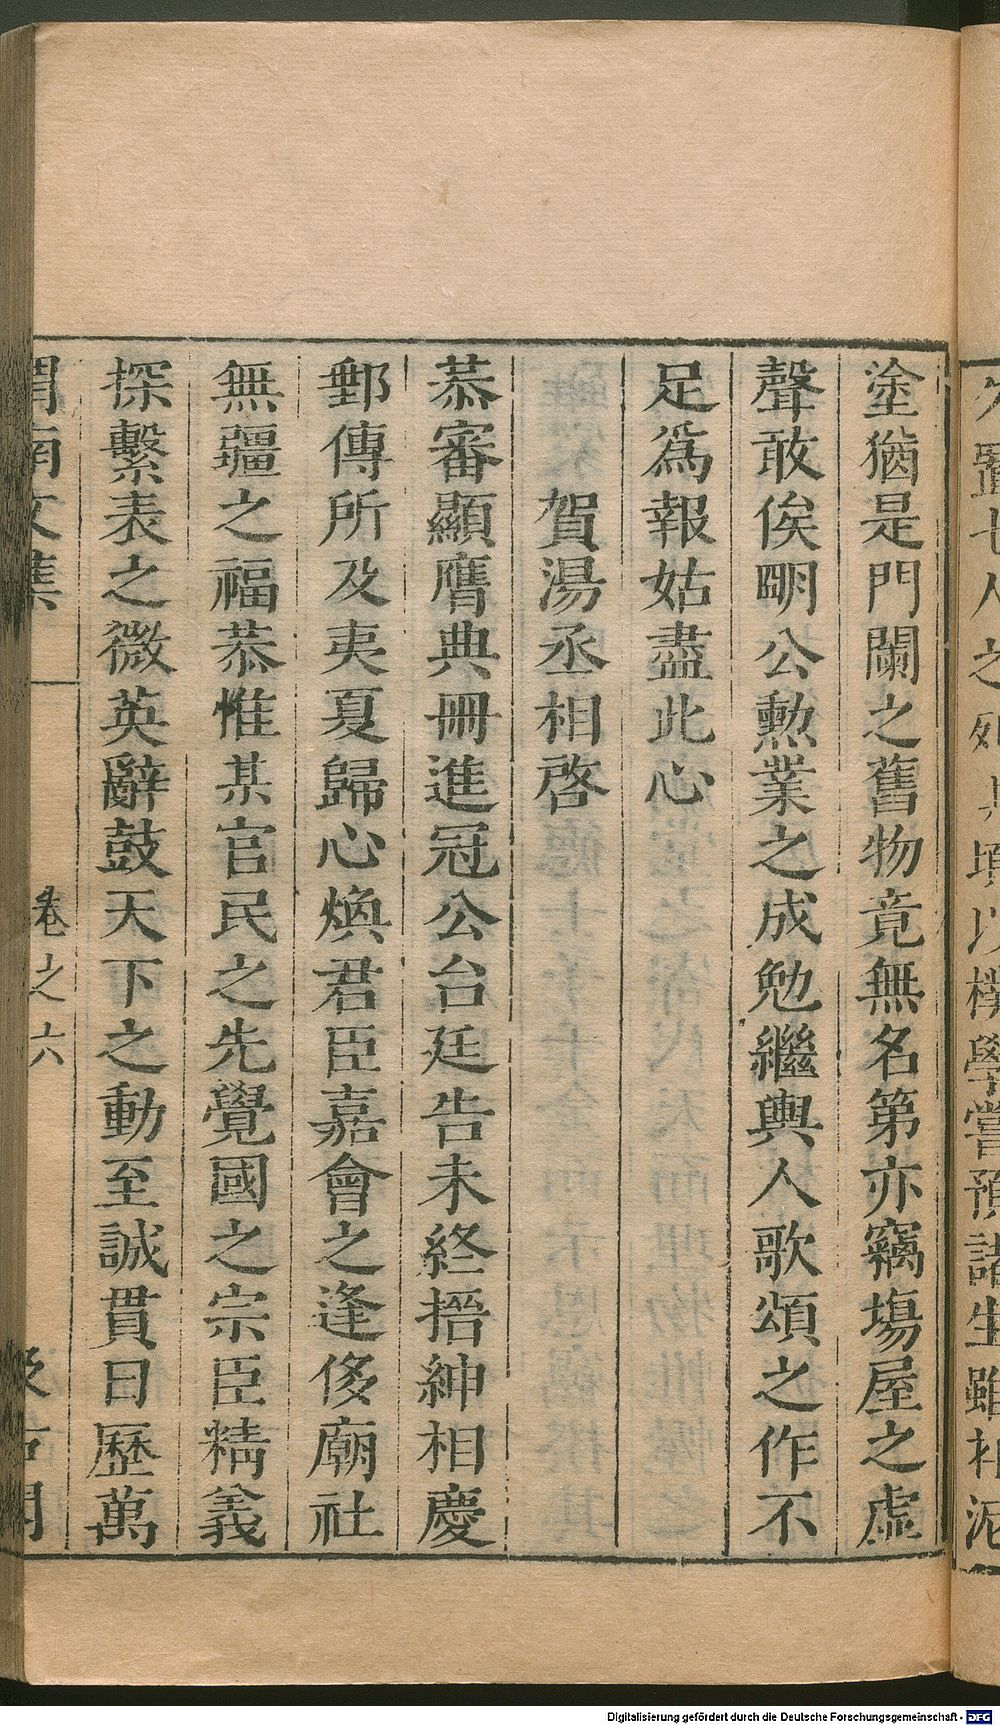 塗猶是門闌之舊物竟無名第亦竊塲屋之虛
聲敢俟明公勲業之成勉繼輿人歌頌之作不
足爲報姑盡此心
賀湯丞相啓
恭審顯膺典冊進冠公台廷告未終搢紳相慶
郵傳所及夷夏歸心煥君臣嘉會之逢侈廟社
無疆之福恭惟某官民之先覺國之宗臣精義
探繫表之微英辭鼓天下之動至誠貫日歷萬
渭南文集
卷之六
汲古閣
Digitalisierung gefördert durch die Deutsche Forschungsgemeinschaft - DFG